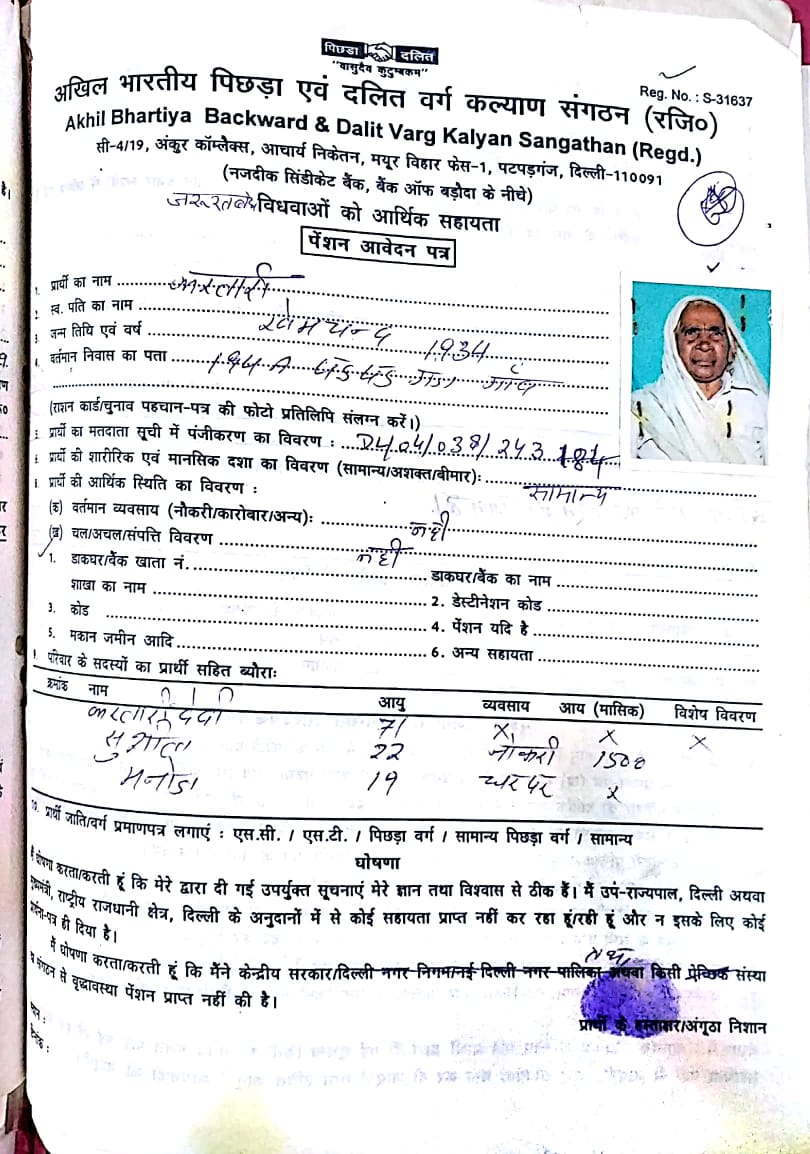 पिछड़ा दलित
"वासुदेव कुटुम्बकम"
Reg. No. : S-31637
अखिल भारतीय पिछड़ा एवं दलित वर्ग कल्याण संगठन (रजि०)
Akhil Bhartiya Backward & Dalit Varg Kalyan Sangathan (Regd.)
सी-4/19, अंकुर कॉम्लैक्स, आचार्य निकेतन, मयूर विहार फेस-1, पटपड़गंज, दिल्ली-110091
(नजदीक सिंडीकेट बैंक, बैंक ऑफ बड़ौदा के नीचे)
विधवाओं को आर्थिक सहायता
पेंशन आवेदन पत्र
1. प्रार्थी का नाम
2. स्व. पति का नाम खेमचन्द
3. जन्म तिथि एवं वर्ष 1934
4. वर्तमान निवास का पता
(राशन कार्ड/चुनाव पहचान-पत्र की फोटो प्रतिलिपि संलग्न करें।)
प्रार्थी का मतदाता सूची में पंजीकरण का विवरण : D4/04/038/243184
प्रार्थी की शारीरिक एवं मानसिक दशा का विवरण (सामान्य/अशक्त/बीमार): सामान्य
प्रार्थी की आर्थिक स्थिति का विवरण :
(क) वर्तमान व्यवसाय (नौकरी/कारोबार/अन्य): नही
(ख) चल/अचल/संपत्ति विवरण नही
1. डाकघर/बैंक खाता नं. डाकघर/बैंक का नाम
शाखा का नाम 2. डेस्टीनेशन कोड
3. कोड 4. पेंशन यदि है
5. मकान जमीन आदि 6. अन्य सहायता
परिवार के सदस्यों का प्रार्थी सहित ब्यौराः
क्रमांक नाम आयु व्यवसाय आय (मासिक) विशेष विवरण
करतारी देवी 71 X X X
सुशीला 22 नौकरी 1500
19 घर पर x
10. प्रार्थी जाति/वर्ग प्रमाणपत्र लगाएं : एस.सी. / एस.टी. / पिछड़ा वर्ग / सामान्य पिछड़ा वर्ग / सामान्य
घोषणा
घोषणा करता/करती हूं कि मेरे द्वारा दी गई उपर्युक्त सूचनाएं मेरे ज्ञान तथा विश्वास से ठीक हैं। मैं उप-राज्यपाल, दिल्ली अथवा
मुख्यमंत्री, राष्ट्रीय राजधानी क्षेत्र, दिल्ली के अनुदानों में से कोई सहायता प्राप्त नहीं कर रहा हूं/रही हूं और न इसके लिए कोई
प्रार्थना-पत्र ही दिया है।
मैं घोषणा करता/करती हूं कि मैंने केन्द्रीय सरकार/दिल्ली नगर निगम/नई दिल्ली नगर पालिका अथवा किसी प्रेच्छिक संस्था
व संगठन से वृद्धावस्था पेंशन प्राप्त नहीं की है।
प्रार्थी के हस्ताक्षर/अंगूठा निशान